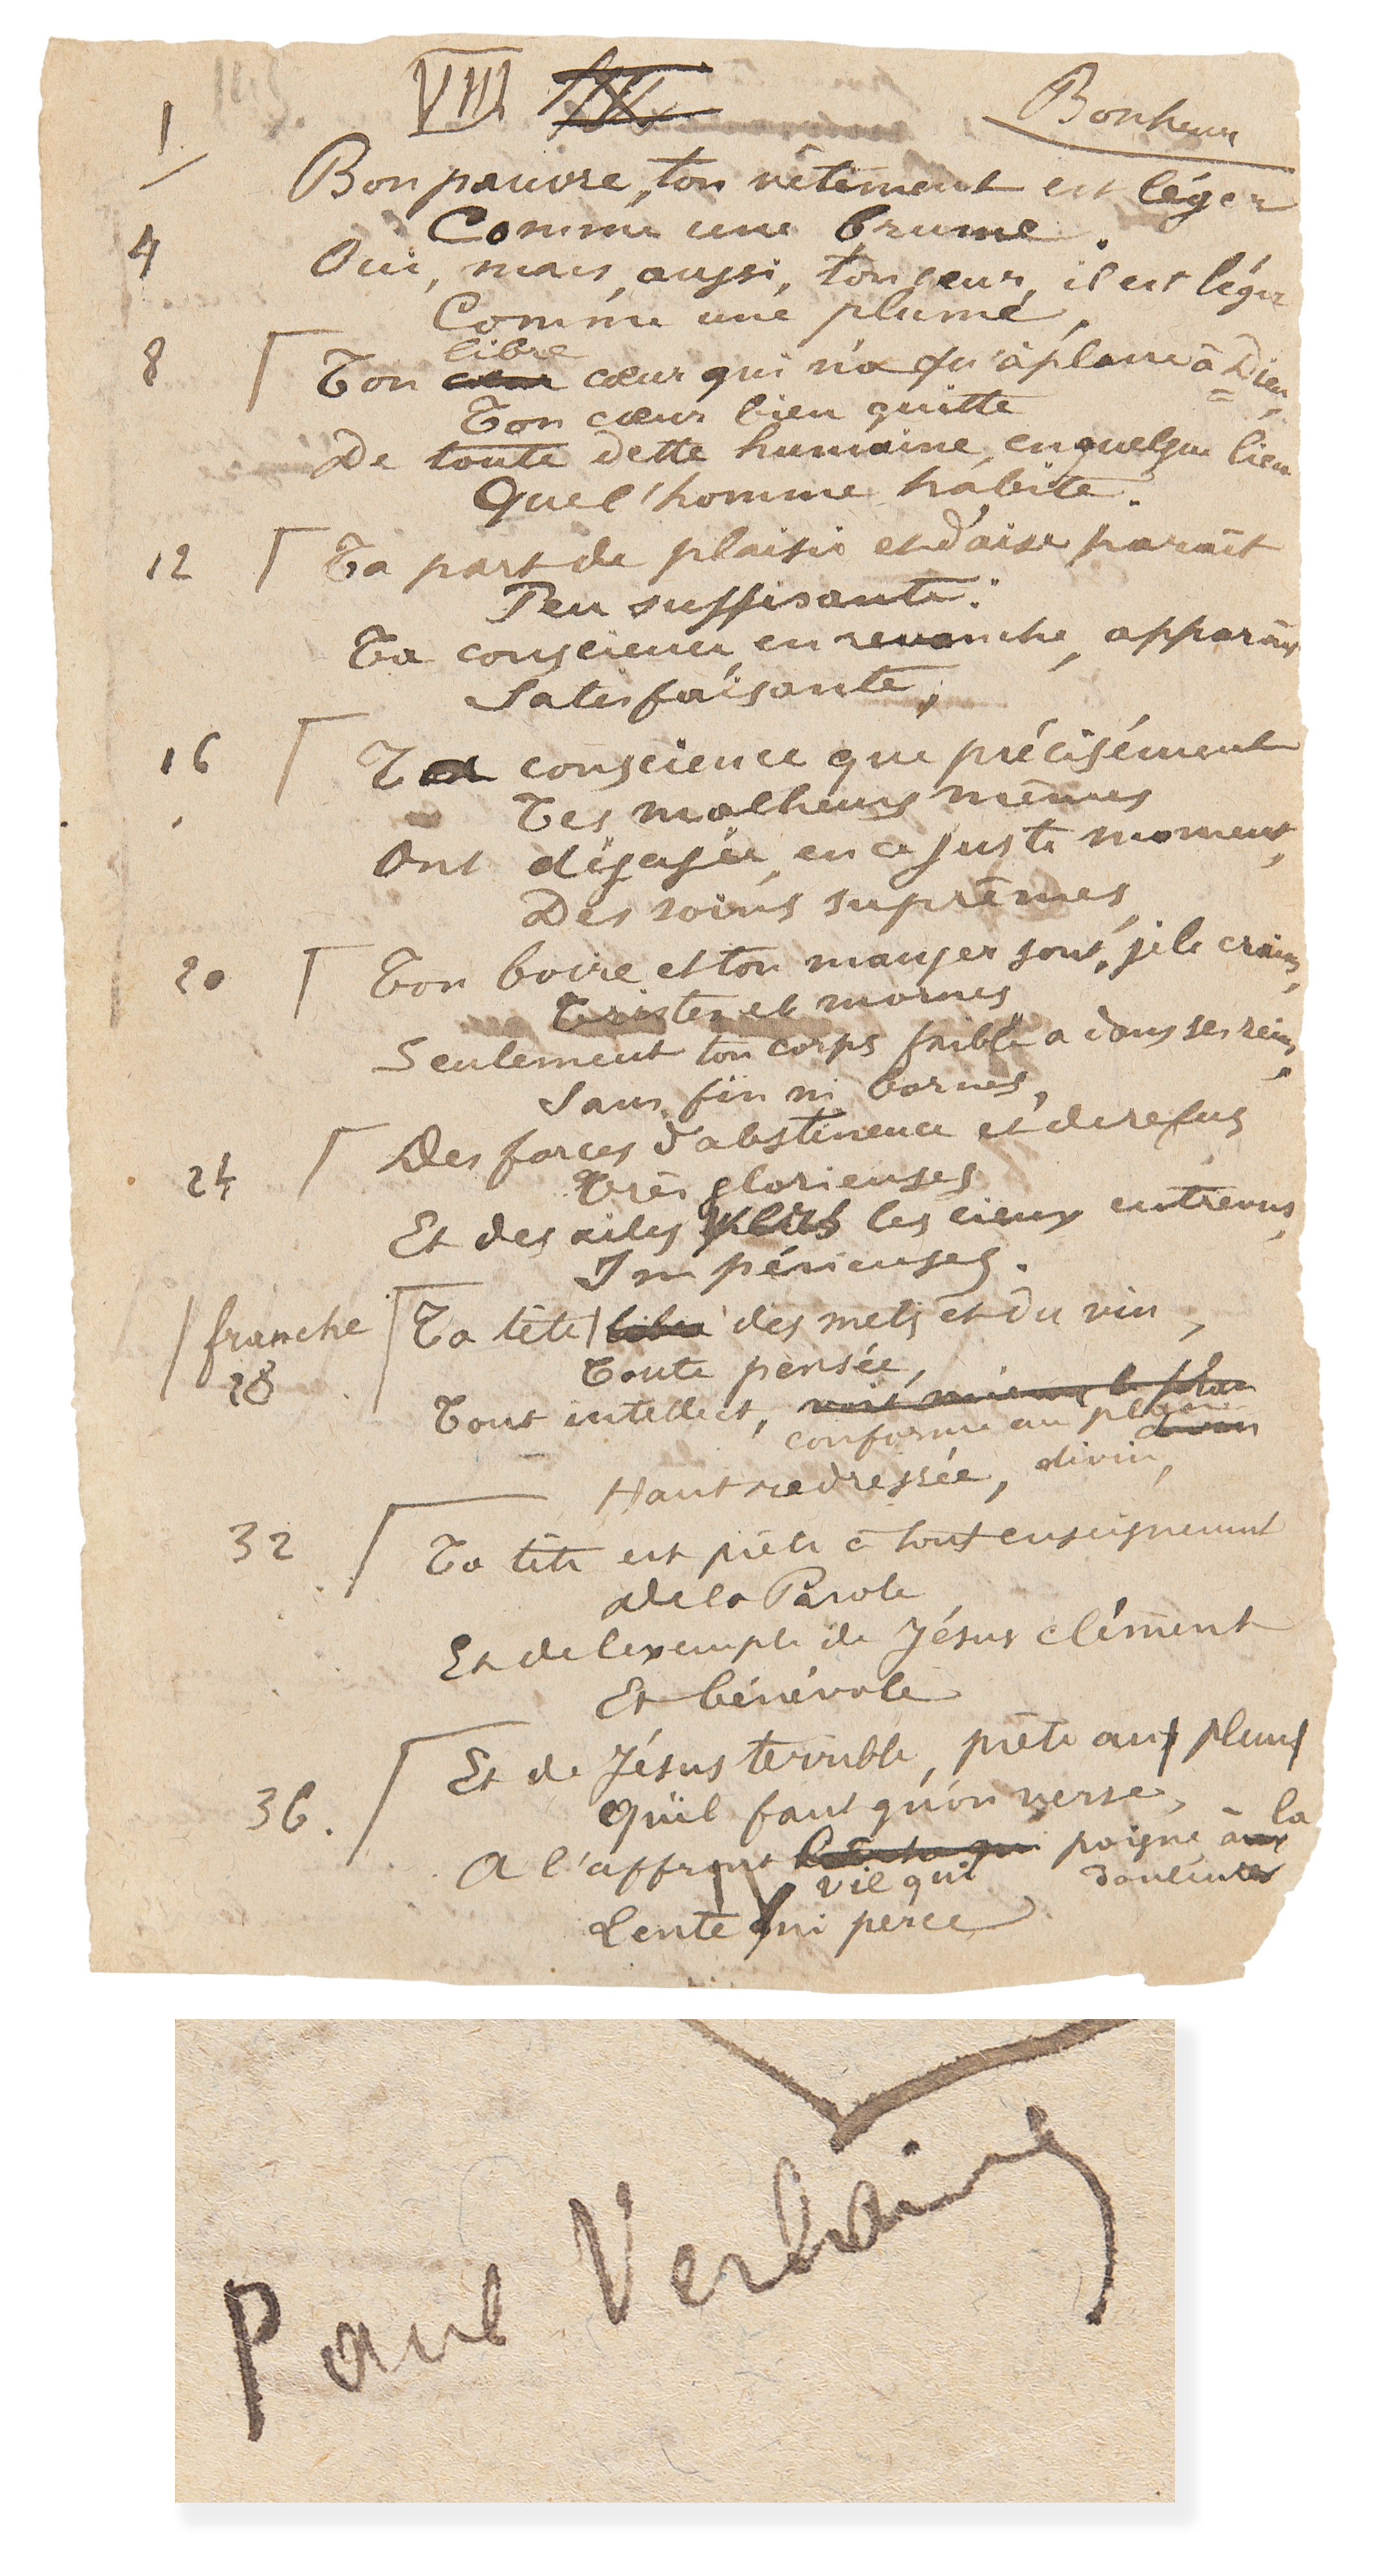 VIII
Bonheur
1
Bon pauvre, ton vêtement est léger
Comme une brume.
4
Oui, mais, aussi, ton cœur, il est léger
Comme une plume,
libre
8
Ton cœur cœur qui n'a qu'à plaire à Dieu,
Ton cœur bien quitte
De toute dette humaine, en quelque lieu
Que l'homme habite.
12
Ta part de plaisir et d'aise paraît
Peu suffisante.
Ta conscience, en revanche, apparaît
Satisfaisante,
16
Ta conscience que précisément
Tes malheurs mêmes
Ont dégagée, en ce juste moment,
Des soins suprêmes,
20
Ton boire et ton manger sont, je le crains,
Tristes et mornes,
Seulement ton corps faible a dans ses reins,
Sans fin ni bornes,
Des forces d'abstinence et de refus
24
Très glorieuses
Et des ailes vers les cieux entrevus,
Impérieuses.
franche
Ta tête libre des mets et du vin,
28
Toute pensée,
Tout intellect, voit mieux le plan
conforme au plan divin
Haut redressée, divin,
32
Ta tête est prête à tout enseignement
de la Parole
Et de l'exemple de Jésus clément
Et bénévole
Et de Jésus terrible, prête aux pleurs
36.
Qu'il faut qu'on verse,
la
A l'affront poigne aux
vil qui douleurs
Lente qui perce
Paul Verlaine